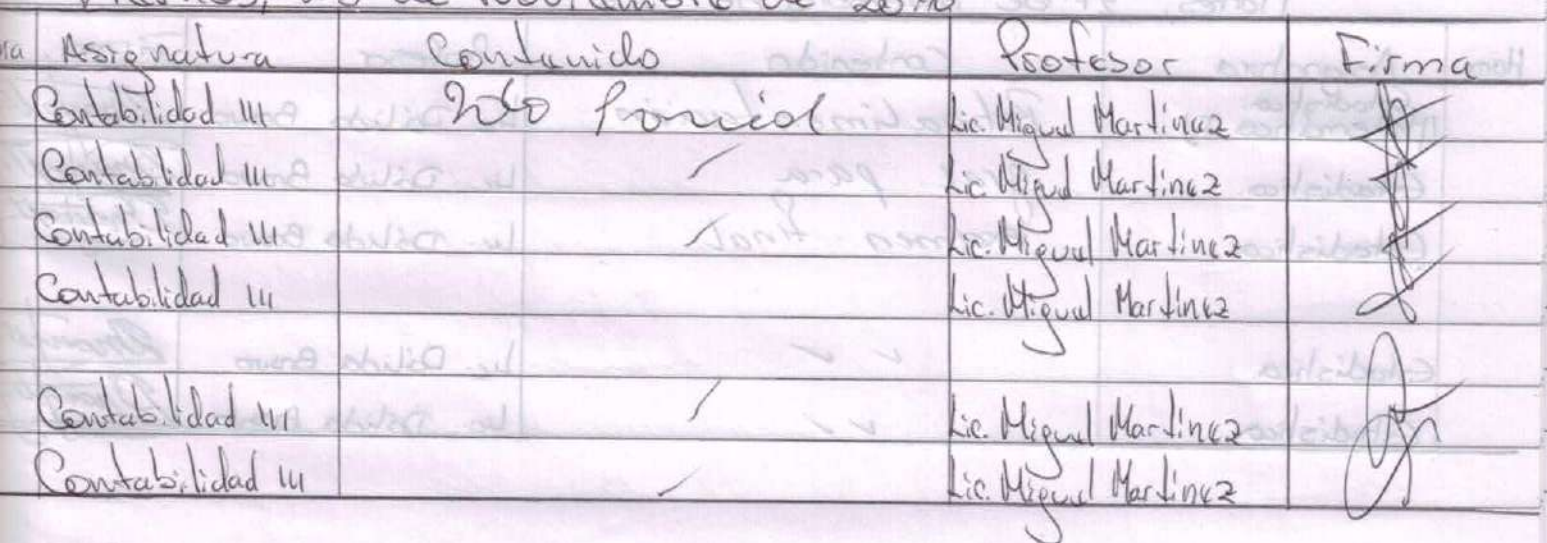 de Noviembre de 2010
Asignatura Contenido Profesor Firma
Contabilidad III 2do Parcial Lic. Miguel Martinez
Contabilidad III Lic. Miguel Martinez
Contabilidad III Lic. Miguel Martinez
Contabilidad III Lic. Miguel Martinez
Contabilidad III Lic. Miguel Martinez
Contabilidad III Lic. Miguel Martinez